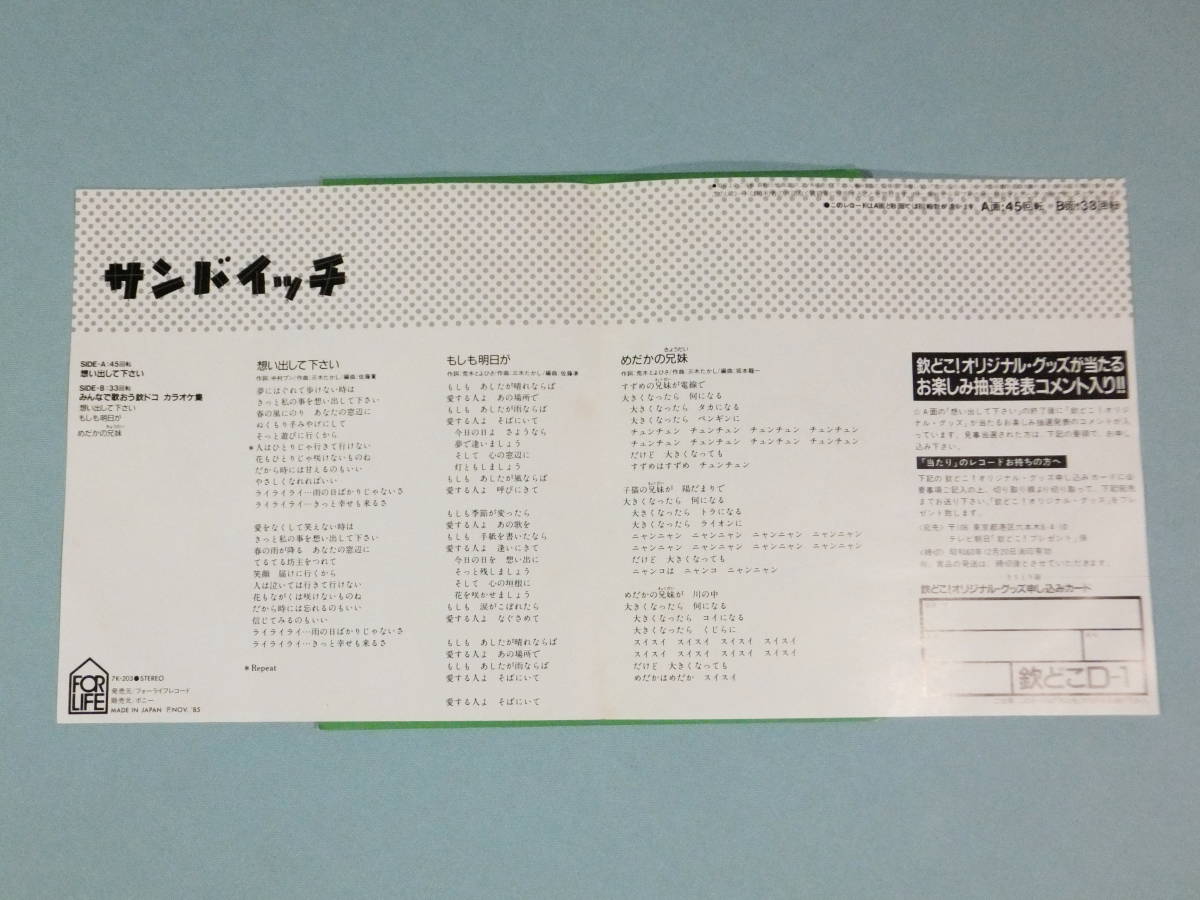 ●このレコードはA面とB面では回転数が違います。 A面:45回転 B面:33回転
サンドイッチ
SIDE-A:45回転
想い出して下さい
SIDE-B:33回転
みんなで歌おう欽ドコ カラオケ集
想い出して下さい
もしも明日が
きょうだい
めだかの兄妹
想い出して下さい
作詞:中村ブン/作曲:三木たかし/編曲:佐藤準
夢にはぐれて歩けない時は
きっと私の事を想い出して下さい
春の風にのり あなたの窓辺に
ぬくもり手みやげにして
そっと遊びに行くから
*人はひとりじゃ行きて行けない
花もひとりじゃ咲けないものね
だから時には甘えるのもいい
やさしくなれればいい
ライライライ…雨の日ばかりじゃないさ
ライライライ…きっと幸せも来るさ
愛をなくして笑えない時は
きっと私の事を想い出して下さい
春の雨が降る あなたの窓辺に
てるてる坊主をつれて
笑顔 届けに行くから
人は泣いては行きて行けない
花もながくは咲けないものね
だから時には忘れるのもいい
信じてみるのもいい
ライライライ…雨の日ばかりじゃないさ
ライライライ…きっと幸せも来るさ
*Repeat
もしも明日が
作詞:荒木とよひさ/作曲:三木たかし/編曲:佐藤準
もしも あしたが晴れならば
愛する人よ あの場所で
もしも あしたが雨ならば
愛する人よ そばにいて
今日の日よ さようなら
夢で逢いましょう
そして 心の窓辺に
灯ともしましょう
もしも あしたが風ならば
愛する人よ 呼びにきて
もしも季節が変ったら
愛する人よ あの歌を
もしも 手紙を書いたなら
愛する人よ 逢いにきて
今日の日を 想い出に
そっと残しましょう
そして 心の垣根に
花を咲かせましょう
もしも 涙がこぼれたら
愛する人よ なぐさめて
もしも あしたが晴れならば
愛する人よ あの場所で
もしも あしたが雨ならば
愛する人よ そばにいて
愛する人よ そばにいて
きょうだい
めだかの兄妹
作詞:荒木とよひさ/作曲:三木たかし/編曲:坂本龍一
すずめの兄妹が電線で
大きくなったら 何になる
大きくなったら タカになる
大きくなったら ペンギンに
チュンチュン チュンチュン チュンチュン チュンチュン
チュンチュン チュンチュン チュンチュン チュンチュン
だけど 大きくなっても
すずめはすずめ チュンチュン
子猫の兄妹が 陽だまりで
大きくなったら 何になる
大きくなったら トラになる
大きくなったら ライオンに
ニャンニャン ニャンニャン ニャンニャン ニャンニャン
ニャンニャン ニャンニャン ニャンニャン ニャンニャン
だけど 大きくなっても
ニャンコは ニャンコ ニャンニャン
めだかの兄妹が 川の中
大きくなったら 何になる
大きくなったら コイになる
大きくなったら くじらに
スイスイ スイスイ スイスイ スイスイ
スイスイ スイスイ スイスイ スイスイ
だけど 大きくなっても
めだかはめだか スイスイ
欽どこ!オリジナル・グッズが当たる
お楽しみ抽選発表コメント入り!!
☆A面の「想い出して下さい」の終了後に「欽どこ!オリジ
ナル・グッズ」が当たるお楽しみ抽選発表のコメントが入
っています。見事当選された方は、下記の要領で、お申し
込み下さい。
「当たり」のレコードお持ちの方へ
下記の欽どこ!オリジナル・グッズ申し込みカードに必
要事項ご記入の上、切り取り線より切り取って、下記宛先
までお送り下さい。「欽どこ!オリジナル・グッズ」をプレ
ゼント致します。
〈宛先〉〒106 東京都港区六本木6-4-10
テレビ朝日「欽どこ!プレゼント」係
〈締切〉昭和60年12月20日消印有効
尚、賞品の発送は、締切後とさせていただきます。
欽どこ!オリジナル・グッズ申し込みカード
欽どこD-1
FOR LIFE
7K-203●STEREO
発売元/フォーライフレコード
販売元/ポニー
MADE IN JAPAN ℗NOV. '85